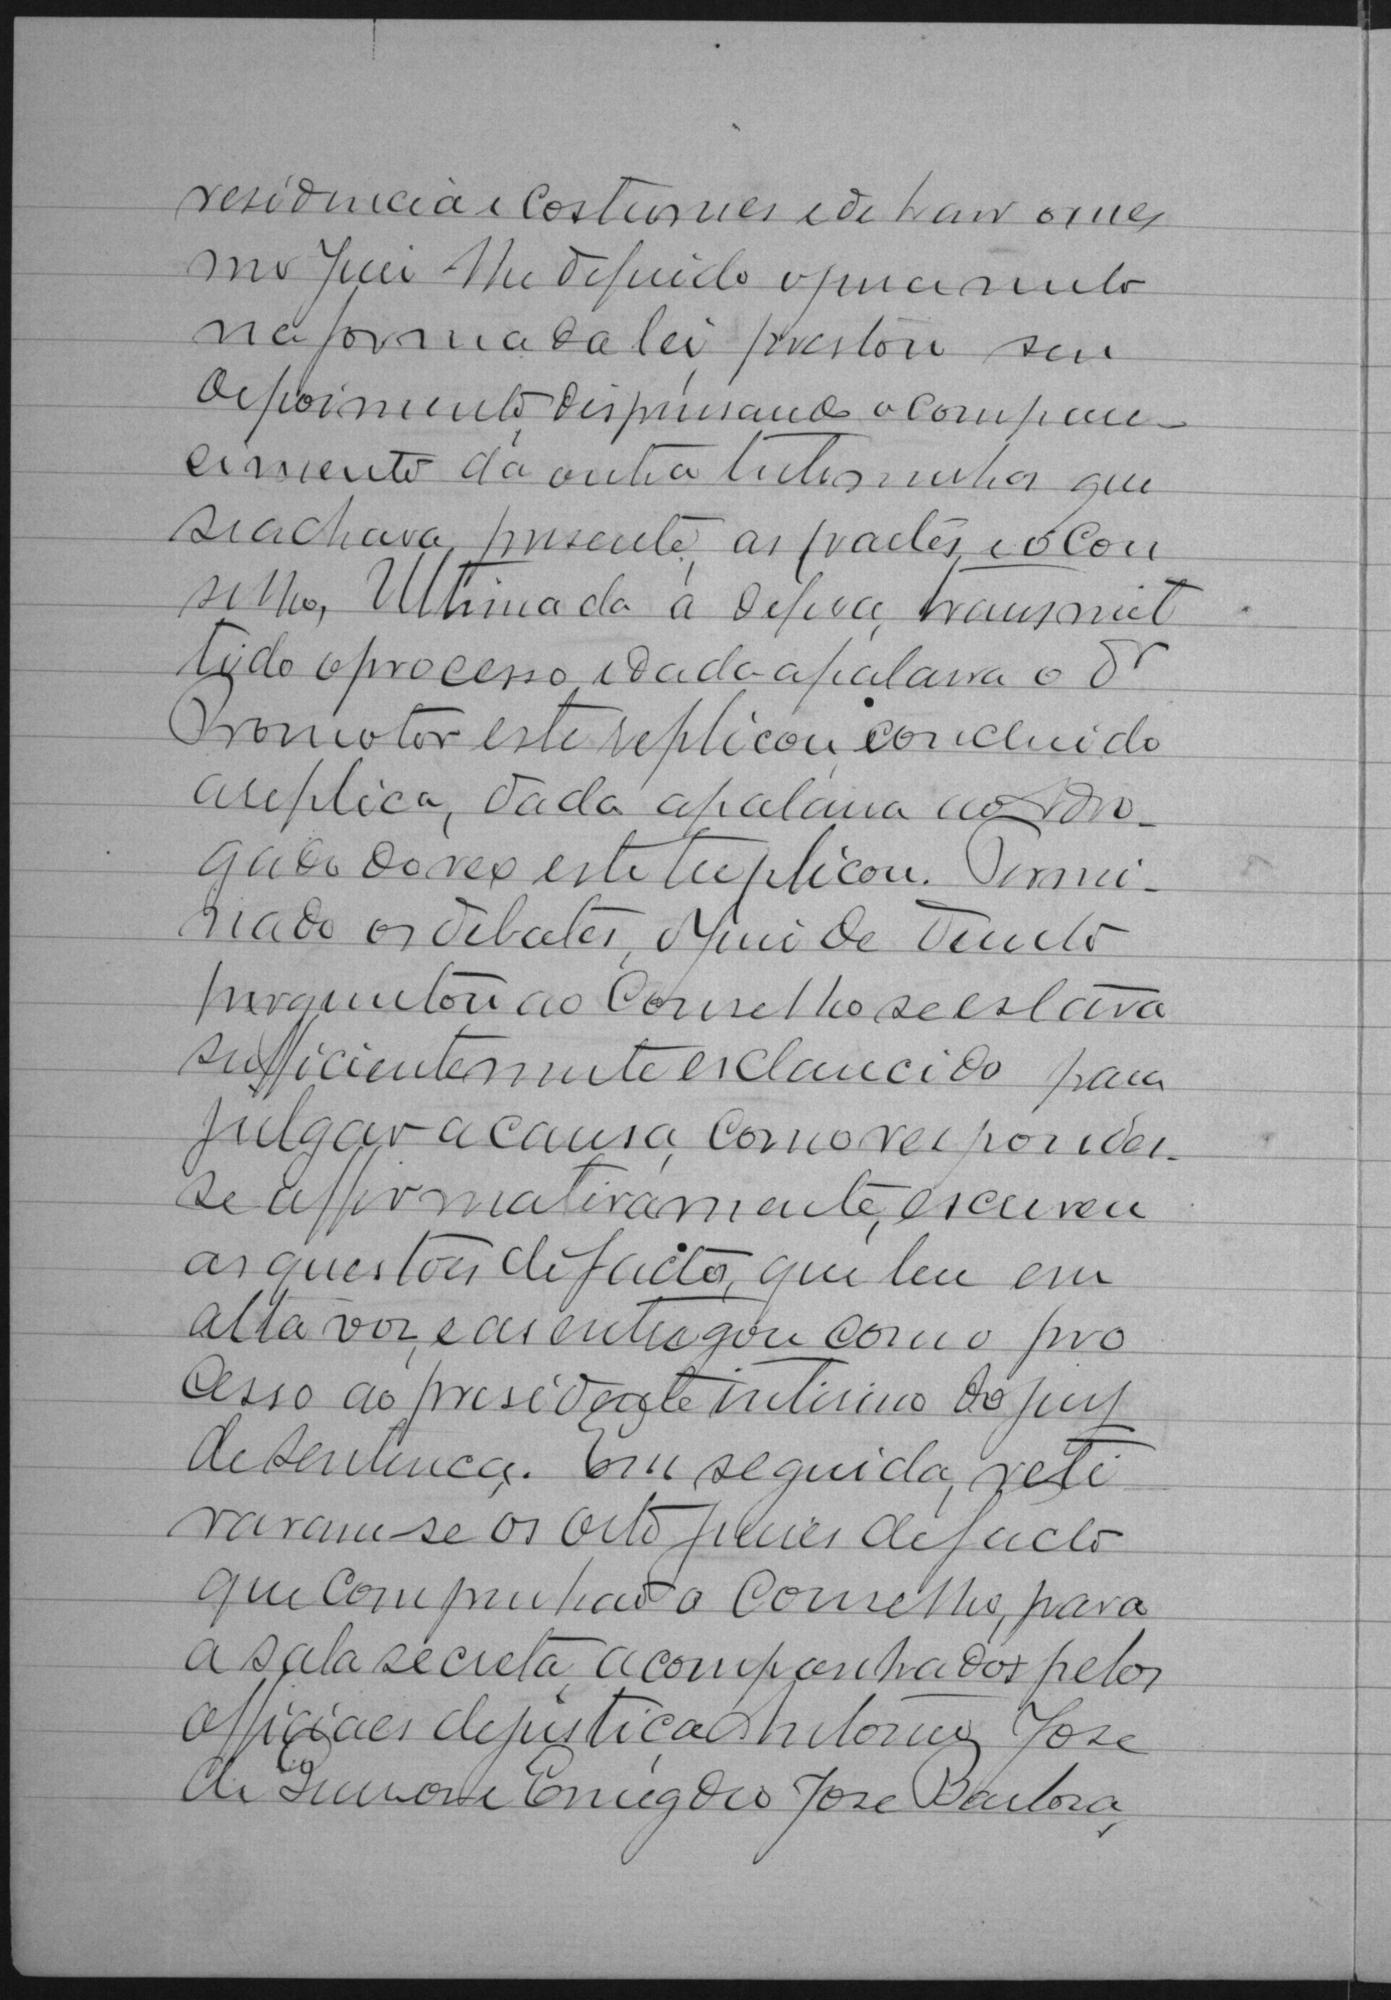 residencia e Costumes e de haver o mes
mo Juiz lhe deferido o juramento
na forma da lei, prestou seu
depoimento, dispensando o compare-
cimento da outra testemunha que
se achava presente, as partes, e o Con
selho, Ultimada a defesa, transmit
tido o processo, e dada a palavra o Dr
Promotor este replicou, concluido
a replica, dada a palavra ao Advo-
gado do reo este treplicou. Termi-
nado os debates, o Juiz de Direito
perguntou ao Conselho se estava
sufficientemente esclarecido para
julgar a causa, como respondes-
se affirmativamente, escreveu
as questões de facto, que leu em
alta voz, e as entregou com o pro
cesso ao presidente interino do jury
de sentença. Em seguida, reti
raram-se os oito juizes de facto
que compunhão o Conselho, para
a sala secreta, acompanhados pelos
officiaes de justiça Antonio Jose
de e Emigdio Jose Barbosa,